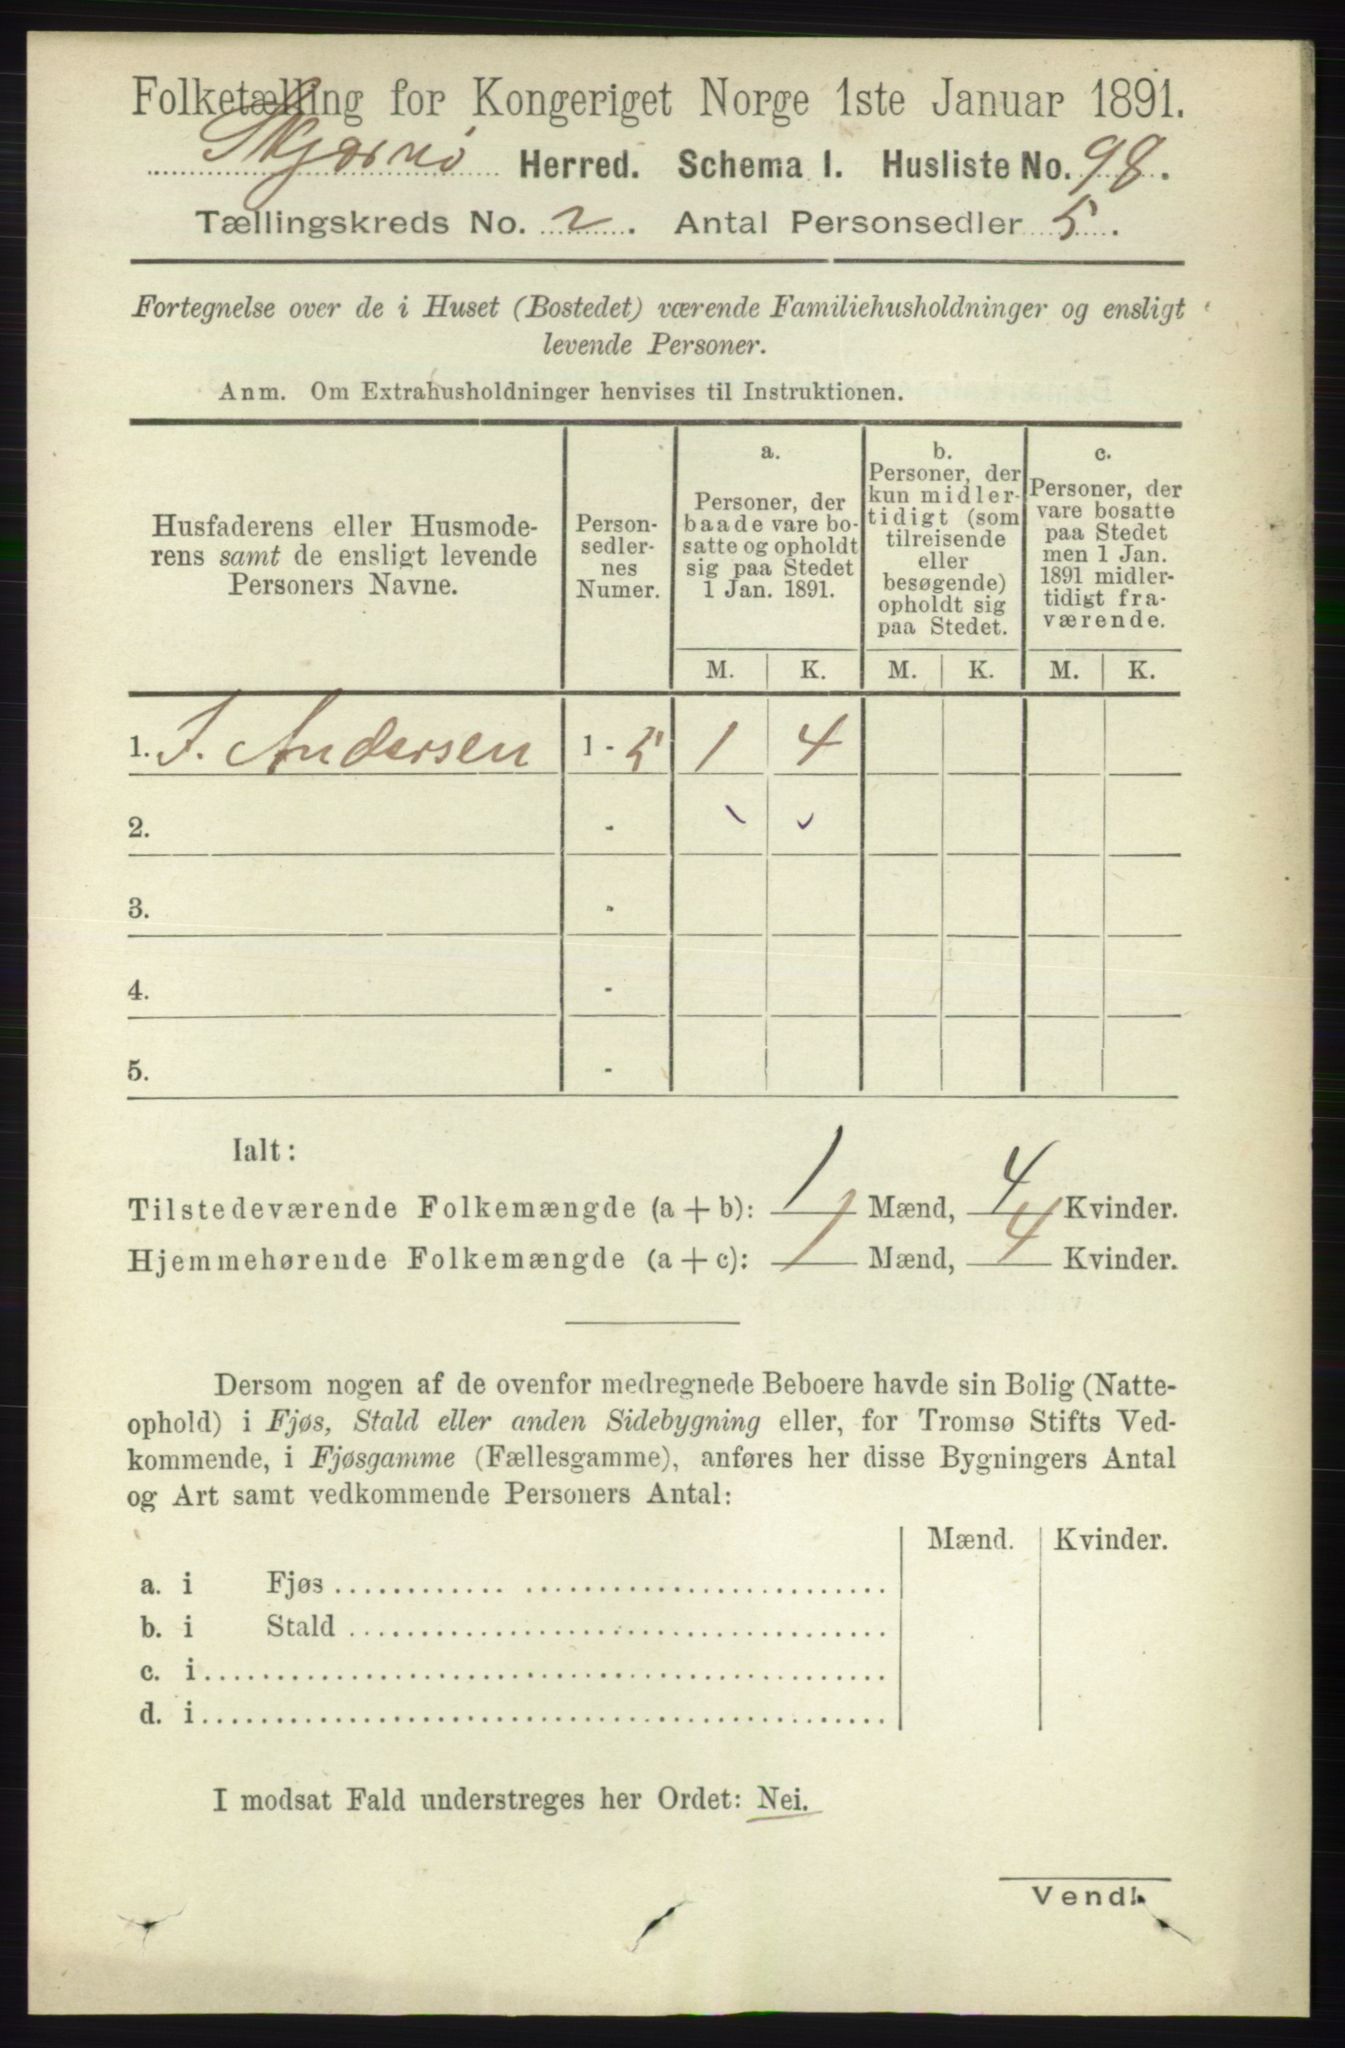 Folketælling for Kongeriget Norge 1ste Januar 1891.
Skjærnø Herred. Schema I. Husliste No. 98.
Tællingskreds No. 2. Antal Personsedler 5.
Fortegnelse over de i Huset (Bostedet) værende Familiehusholdninger og ensligt
levende Personer.
Anm. Om Extrahusholdninger henvises til Instruktionen.
Husfaderens eller Husmode-
rens samt de ensligt levende
Personers Navne.
Person-
sedler-
nes
Numer.
a.
Personer, der
baade vare bo-
satte og opholdt
sig paa Stedet
1 Jan. 1891.
b.
Personer, der
kun midler-
tidigt (som
tilreisende
eller
besøgende)
opholdt sig
paa Stedet.
c.
Personer, der
vare bosatte
paa Stedet
men 1 Jan.
1891 midler-
tidigt fra-
værende.
M. K. M. K. M. K.
1. J. Andersen 1 - 5 1 4
2. -
3. -
4. -
5. -
Ialt:
Tilstedeværende Folkemængde (a + b): 1 Mænd, 4 Kvinder.
Hjemmehørende Folkemængde (a + c): 1 Mænd, 4 Kvinder.
Dersom nogen af de ovenfor medregnede Beboere havde sin Bolig (Natte-
ophold) i Fjøs, Stald eller anden Sidebygning eller, for Tromsø Stifts Ved-
kommende, i Fjøsgamme (Fællesgamme), anføres her disse Bygningers Antal
og Art samt vedkommende Personers Antal:
Mænd. Kvinder.
a. i Fjøs
b. i Stald
c. i
d. i
I modsat Fald understreges her Ordet: Nei.
Vend!